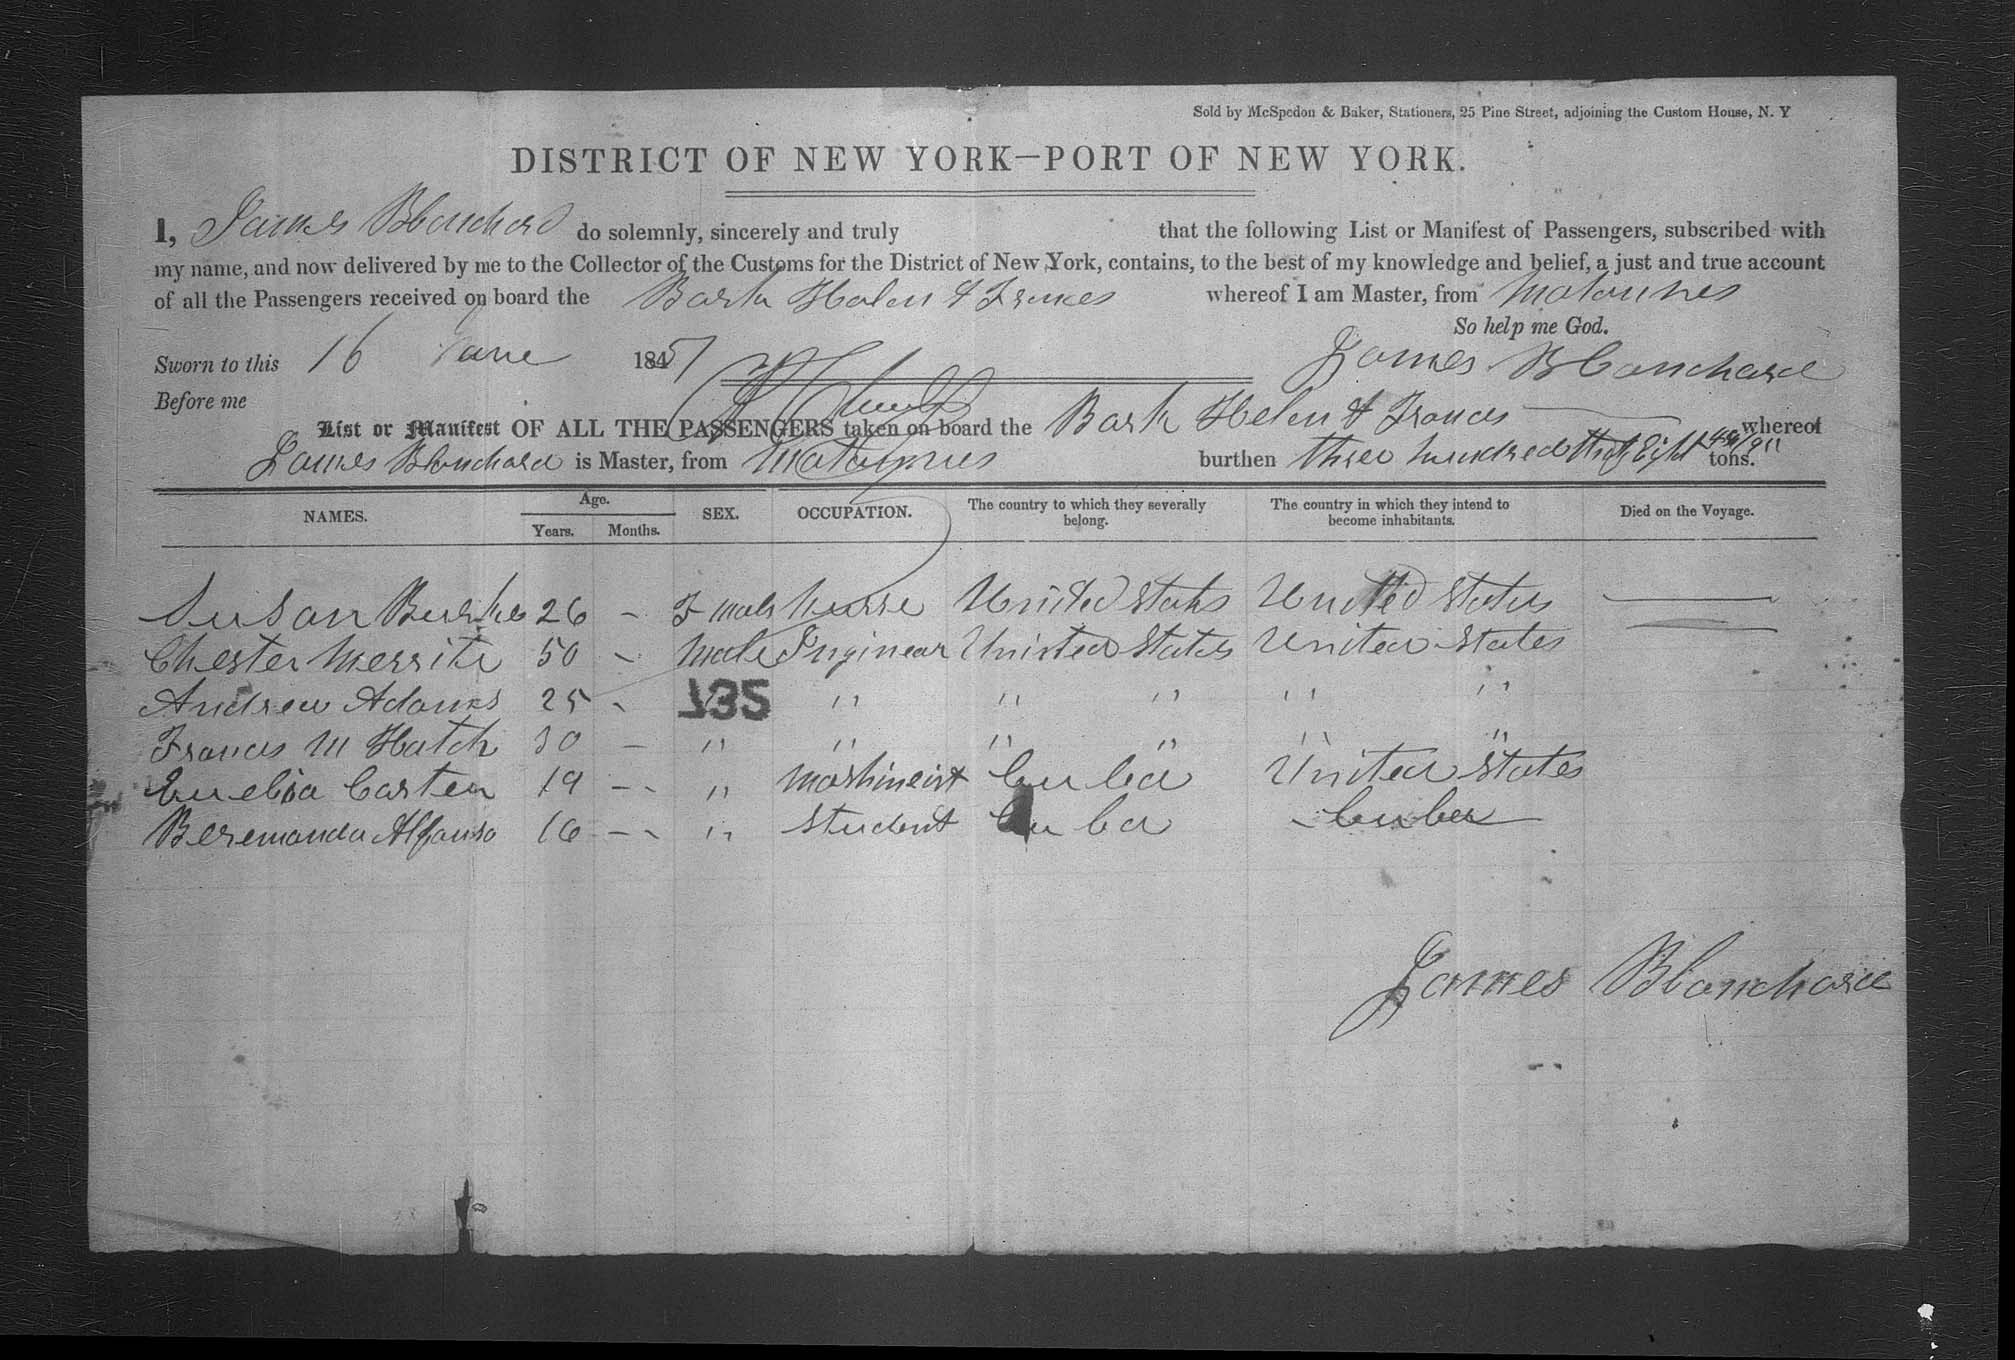 Sold by McSpedon & Baker, Stationers, 25 Pine Street, adjoining the Custom House, N. Y
DISTRICT OF NEW YORK—PORT OF NEW YORK.
I, James Blanchard do solemnly, sincerely and truly that the following List or Manifest of Passengers, subscribed with
my name, and now delivered by me to the Collector of the Customs for the District of New York, contains, to the best of my knowledge and belief, a just and true account
of all the Passengers received on board the Bark Helen & Frances whereof I am Master, from Matanzes
So help me God.
Sworn to this 16 June 1847 James Blanchard
Before me
List or Manifest OF ALL THE PASSENGERS taken on board the Bark Helen & Frances whereof
James Blanchard is Master, from burthen three hundred tons.
NAMES. Age. Years. Months. SEX. OCCUPATION. The country to which they severally belong. The country in which they intend to become inhabitants. Died on the Voyage.
Susan Burke 26 - Female nurse United States United States
Chester Merrite 50 - Male Enginear United States United States
Andrew Adams 25 - 135 " " " " "
Francis M Hatch 30 - " " " " " "
Carten 19 - - " Mashineist Cuba United States
Alfonso 16 - - " Student Cuba Cuber
James Blanchard